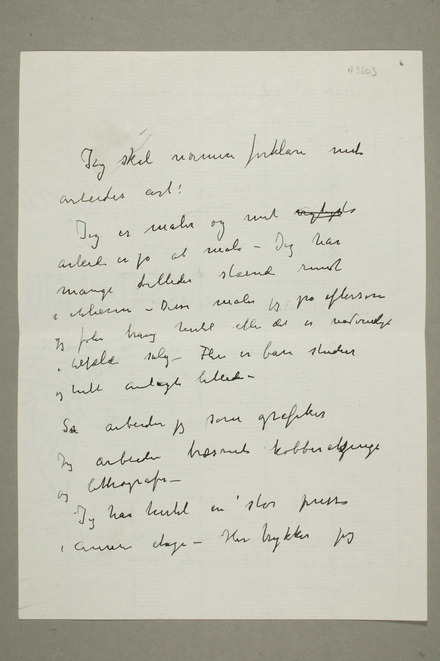 N 3603
Jeg skal nærmere forklare mit
arbeides art!
Jeg er maler og mit
arbeide er jo at male – Jeg har
mange billeder staaende rundt
i atelieren – Disse maler jeg på eftersom
jeg føler trang hertil eller det er nødvendigt
i tilfælde salg – Flere er bare studier
og helt anlagte billeder –
Så arbeider jeg som grafiker
Jeg arbeider træsnit kobberætsninge
og lithografi –
Jeg har hertil en stor presse
i annen etage – Her trykker jeg